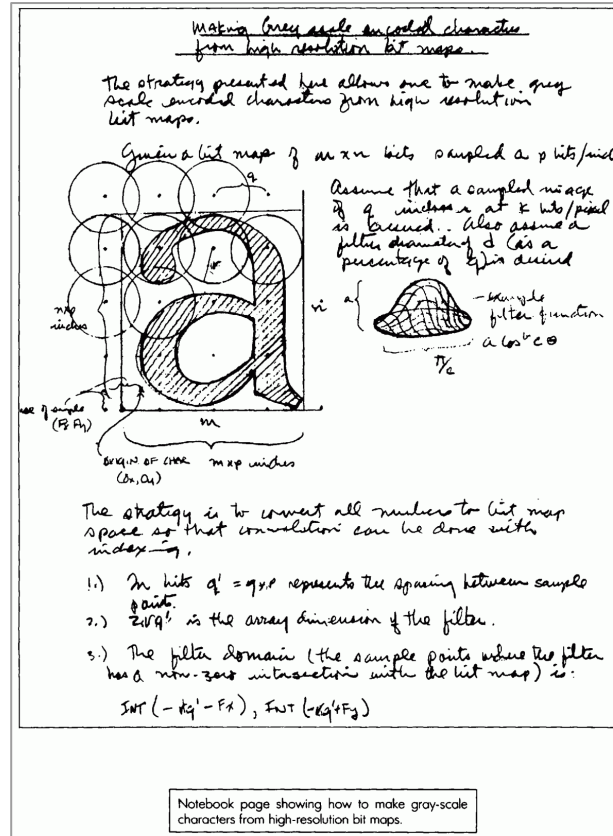 Making Grey scale encoded characters
from high resolution bit maps.
The strategy presented here allows one to make grey
scale encoded characters from high resolution
bit maps.
Given a bit map of m x n bits sampled a p bits/inch
q
Assume that a sampled image
of q inches at k bits/pixel
is desired. Also assume a
filter diameter of d (as a
percentage of q) is desired
n
a
example
filter function
a cos
π/c
inches
(Fx, Fy)
m
ORIGIN OF CHAR
(Ox, Oy)
mxp inches
The strategy is to convert all numbers to bit map
space so that convolution can be done with
indexing.
1.) In bits q' = q x p represents the spacing between sample
points.
2.) is the array dimension of the filter.
3.) The filter domain (the sample points where the filter
has a non-zero intersection with the bit map) is:
INT (- q' - Fx), INT (- q' + Fy)
Notebook page showing how to make gray-scale
characters from high-resolution bit maps.